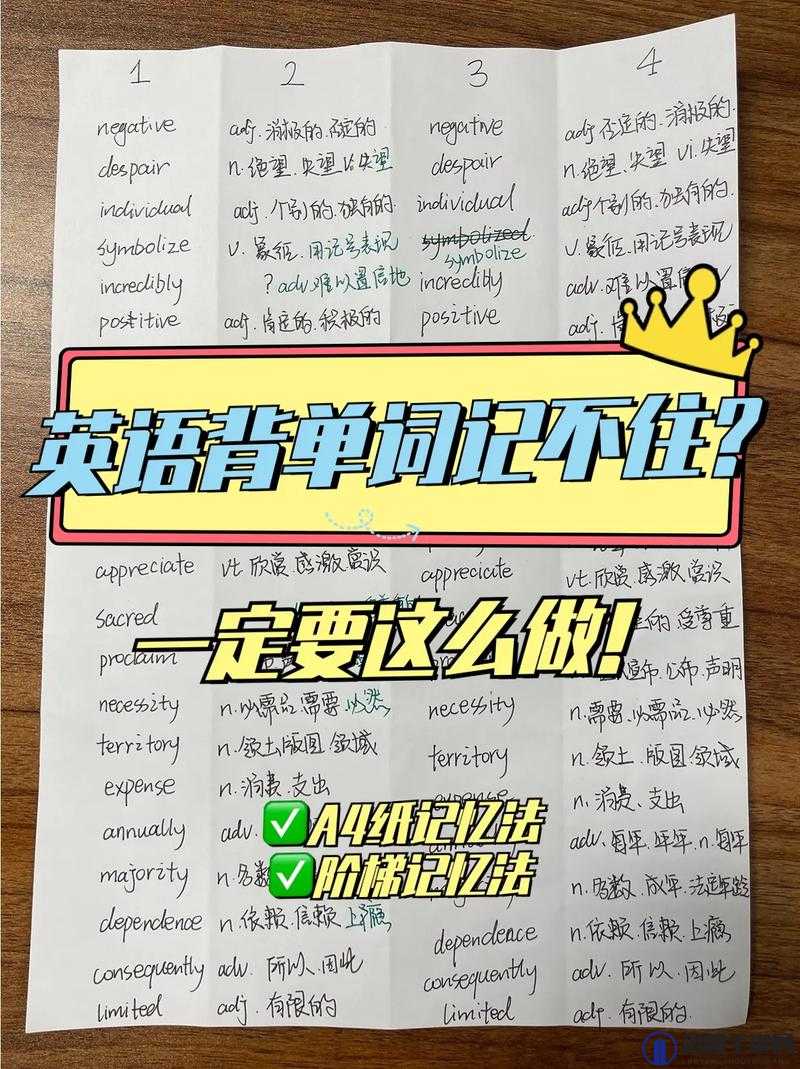 1 2 3 4
negative adj.消极的.否定的 negative adj 否定的.消极的.
despair n.绝望.失望 vi.失望 despair n.绝望.失望 vi.失望
individual adj.个别的.独有的. individual adj个别的.独有的.
symbolize v.象征.用记号表现 symbolized symbolize v.象征.用记号表现
incredibly ? adv.难以置信地 incredibly adv.难以置信
positive adj.肯定的.积极的 positive adj.
英语背单词记不住?
appreciate vt.欣赏.感激.赏识 appreciate vt.欣赏.感激.赏识
sacred 的.受尊重
一定要这么做!
proclaim 宣布.公布.声明
necessity n.必需品.需要.必然 necessity n.需要.必需品.必然
territory n.领土.版图.领域 territory n.领土.版图.领域
expense n.消费.支出 n.消费.支出
annually adv. adv.每年.年年.n.每年
A4纸记忆法
majority n.多数 n.多数.成年.法定年龄
阶梯记忆法
dependence n.依赖.信赖.上瘾 dependence n.依赖.信赖.上瘾
consequently adv.所以.因此 consequently adv.所以.因此
limited adj.有限的 limited adj.有限的.